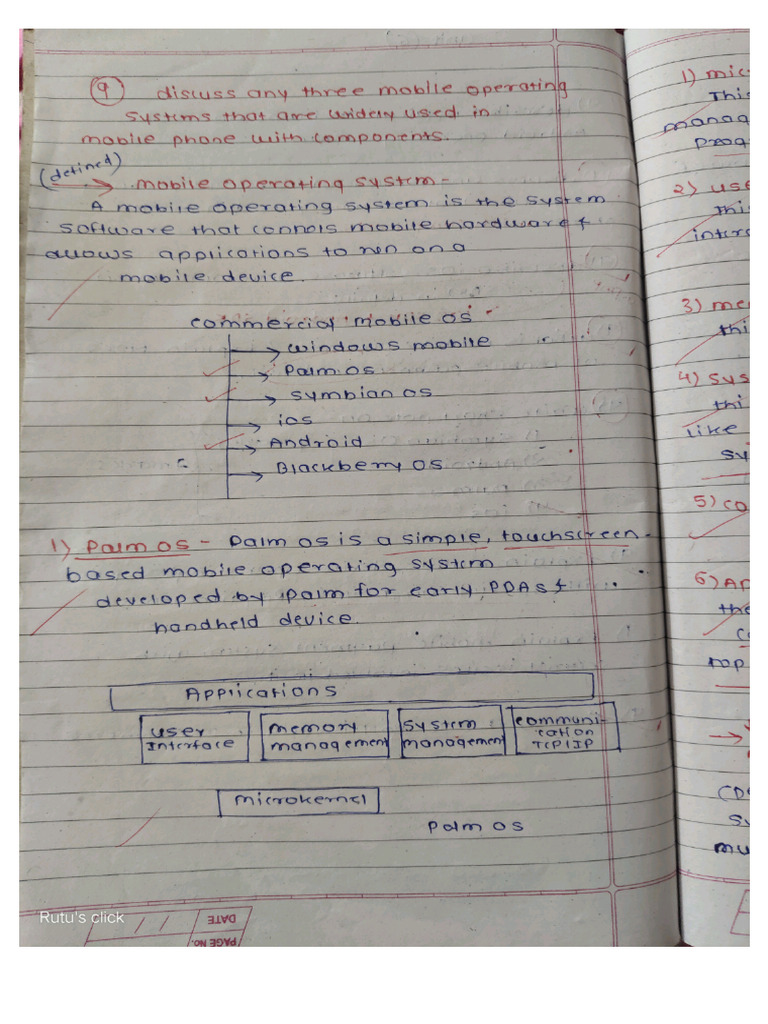 9 discuss any three mobile operating
systems that are widely used in
mobile phone with components.
(defined)
mobile operating system-
A mobile operating system is the system
software that connols mobile hardware &
allows applications to run on a
mobile device.
commercial mobile os -
windows mobile
Palm os
symbian os
ios
Android
Blackberry os
1) Palm os - Palm os is a simple, touchscreen-
based mobile operating system
developed by palm for early PDAs &
handheld device.
Applications
user
Interface
memory
management
system
management
communi-
cation
TCP|IP
microkernel
Palm os
Rutu's click
DATE
PAGE No.
1) mic
This
manag
Prog
2) use
thi
inter
3) me
thi
4) sys
thi
like
sy
5) co
6) Ap
the
c
top
(PD
sy
mu